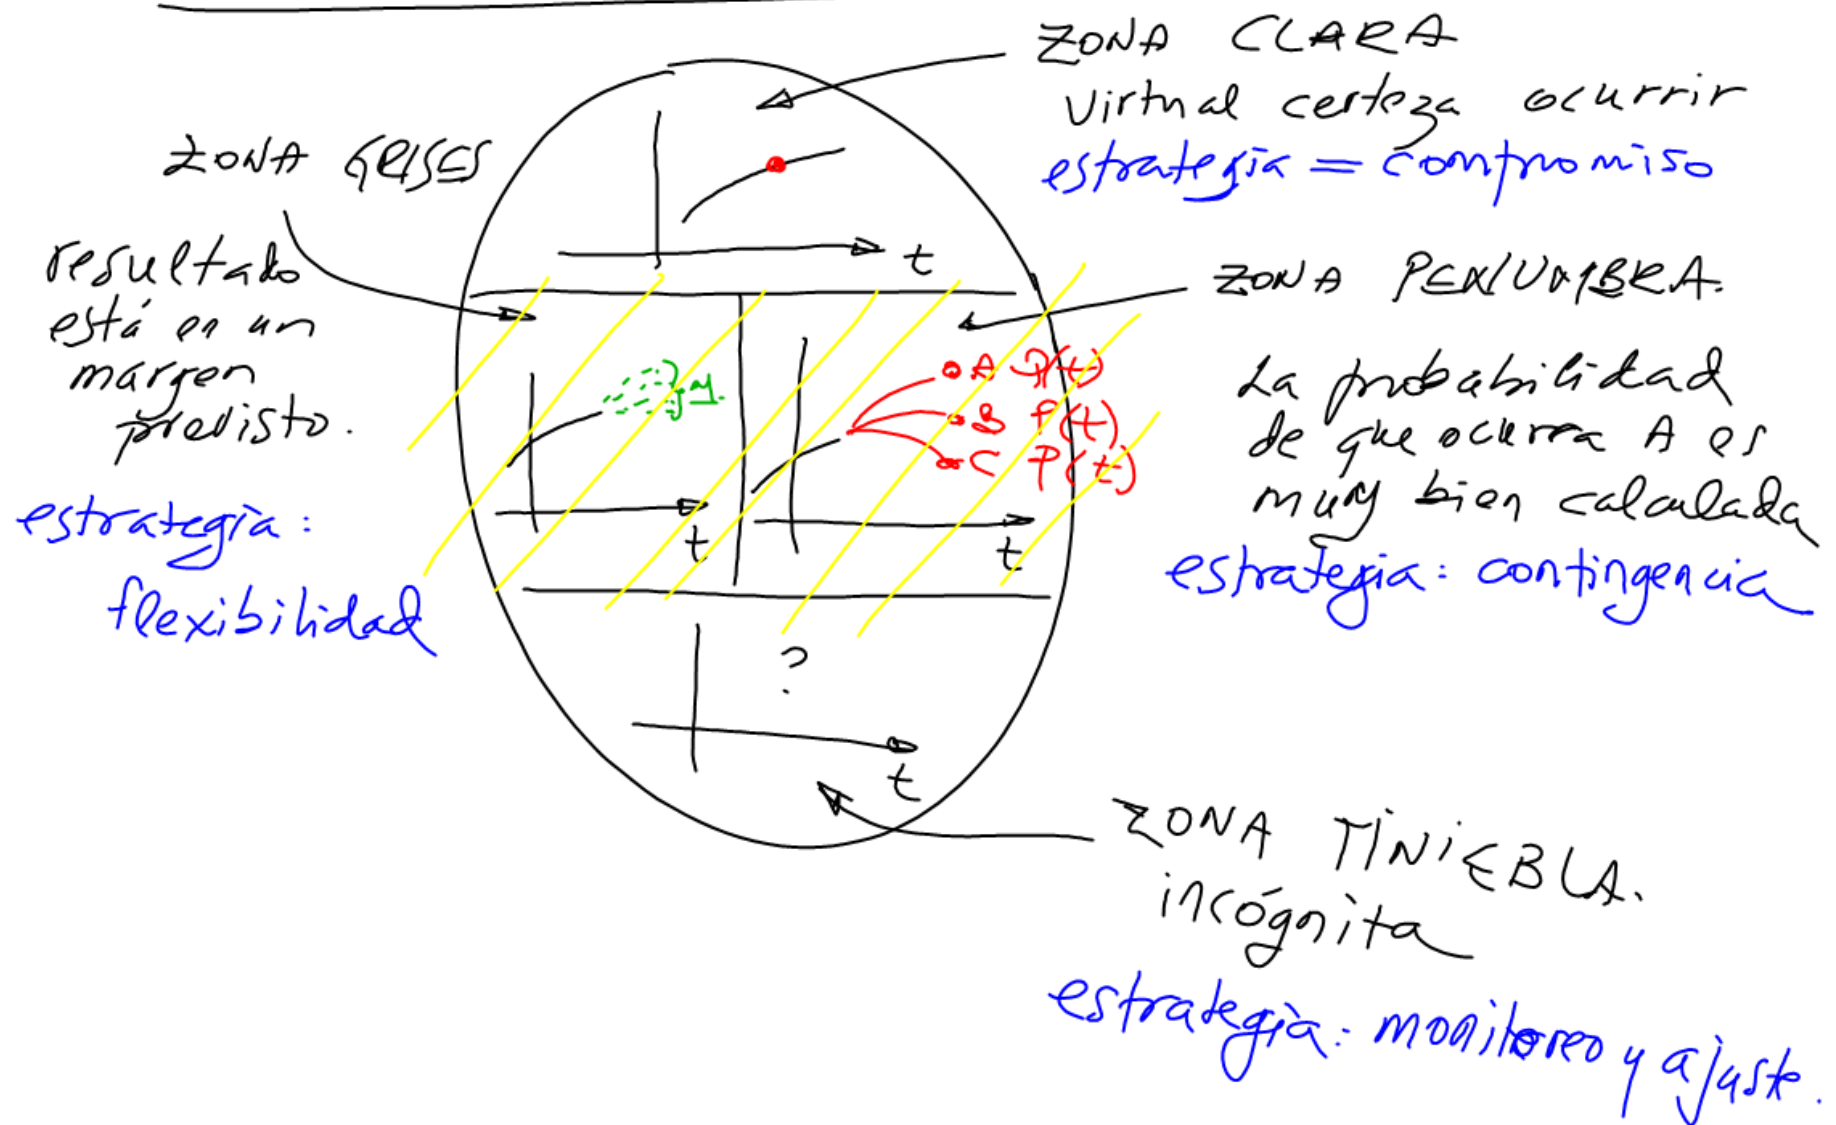 ZONA CLARA
virtual certeza ocurrir
estrategia = compromiso
ZONA GRISES
resultado
está en un
margen
previsto.
estrategia:
flexibilidad
t
ZONA PENUMBRA.
La probabilidad
de que ocurra A es
muy bien calculada
estrategia: contingencia
A P(t)
B P(t)
C P(t)
t
t
?
t
ZONA TINIEBLA.
incógnita
estrategia: monitoreo y ajuste.